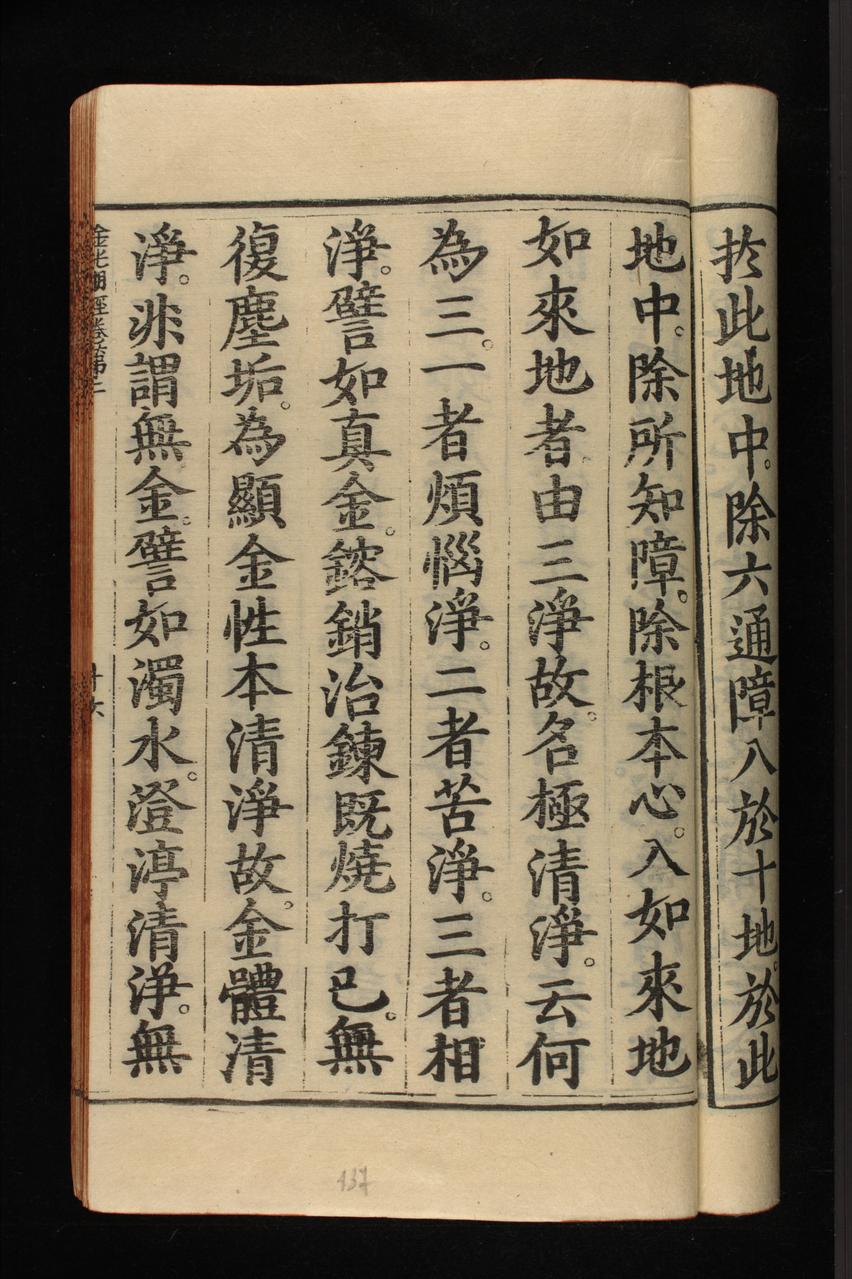 扵此地中。除六通障入於十地。於此
地中。除所知障。除根本心。入如來地
如來地者。由三淨故。名極清淨。云何
為三。一者煩惱淨。二者苦淨。三者相
淨。譬如真金。鎔銷治鍊既燒打已。無
復塵垢。為顯金性本清淨故。金體清
淨。非謂無金。譬如濁水。澄渟清淨。無
金光明經卷第二
137